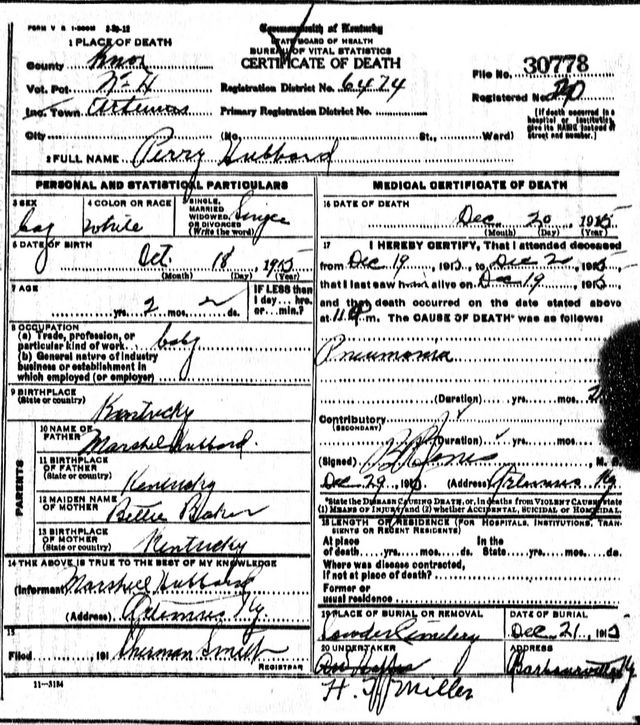 FORM V S 1-200M 2-20-12
Commonwealth of Kentucky
STATE BOARD OF HEALTH
BUREAU OF VITAL STATISTICS
CERTIFICATE OF DEATH
1 PLACE OF DEATH
County Knox
Vot. Pct. No 4
Inc. Town Artemus
City
Registration District No. 6474
Primary Registration District No.
(No. St., Ward)
File No. 30778
Registered No.
(If death occurred in a hospital or institution, give its NAME instead of street and number.)
2 FULL NAME Perry Hubbard
PERSONAL AND STATISTICAL PARTICULARS
3 SEX boy
4 COLOR OR RACE White
5 SINGLE, MARRIED WIDOWED, OR DIVORCED (Write the word) Single
6 DATE OF BIRTH
Oct. 18, 1915
(Month) (Day) (Year)
7 AGE
yrs. 2 mos. 2 ds.
IF LESS than 1 day... hrs. or... min.?
8 OCCUPATION
(a) Trade, profession, or particular kind of work baby
(b) General nature of industry business or establishment in which employed (or employer)
9 BIRTHPLACE
(State or country) Kentucky
PARENTS
10 NAME OF FATHER Marshel Hubbard.
11 BIRTHPLACE OF FATHER
(State or country) Kentucky
12 MAIDEN NAME OF MOTHER Bettie Baker
13 BIRTHPLACE OF MOTHER
(State or country) Kentucky
14 THE ABOVE IS TRUE TO THE BEST OF MY KNOWLEDGE
(Informant) Marshell Hubbard
(Address) Artemus Ky
15
Filed 191 Sherman Smith
REGISTRAR
11-3184
MEDICAL CERTIFICATE OF DEATH
16 DATE OF DEATH
Dec 20 1915
(Month) (Day) (Year)
17 I HEREBY CERTIFY, That I attended deceased
from Dec 19, 1915, to Dec 20, 1915
that I last saw him alive on Dec 19, 1915
and that death occurred on the date stated above
at 11 P m. The CAUSE OF DEATH* was as follows:
Pneumonia
(Duration) yrs. mos. 2
Contributory
(SECONDARY)
(Duration) yrs. mos.
(Signed) Jones M.
Dec 29, 1915 (Address) Artemus Ky
*State the DISEASE CAUSING DEATH, or, in deaths from VIOLENT CAUSES state (1) MEANS OF INJURY; and (2) whether ACCIDENTAL, SUICIDAL OR HOMICIDAL.
18 LENGTH OF RESIDENCE (FOR HOSPITALS, INSTITUTIONS, TRANSIENTS OR RECENT RESIDENTS)
At place of death yrs. mos. ds.
In the State yrs. mos. ds.
Where was disease contracted,
if not at place of death?
Former or
usual residence
19 PLACE OF BURIAL OR REMOVAL
Cemetery
DATE OF BURIAL
Dec. 21, 1915
20 UNDERTAKER
H. Miller
ADDRESS
Barbourville, Ky